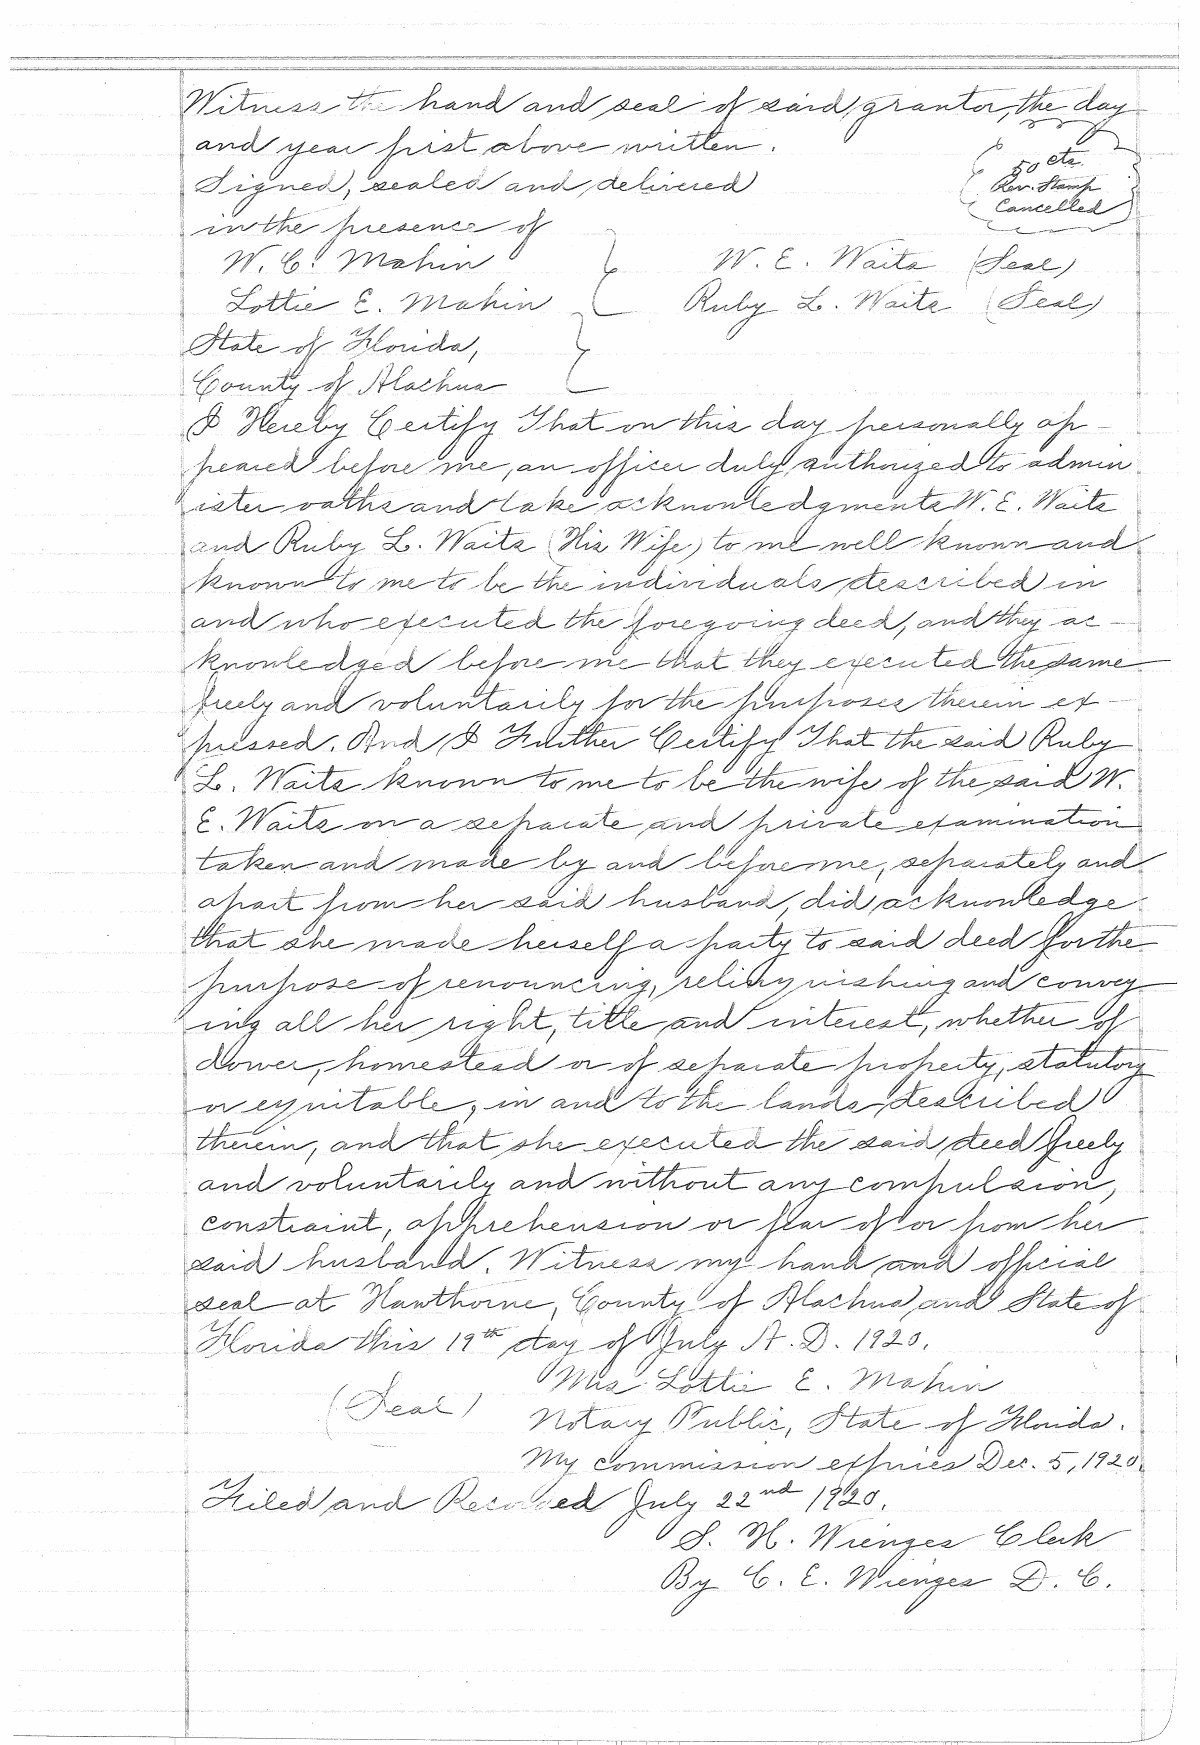 Witness the hand and seal of said grantor, the day
and year first above written.
50 cts.
Rev. Stamp
Cancelled
Signed, sealed and delivered
in the presence of
W. C. Mahin
Lottie E. Mahin
W. E. Waits (Seal)
Ruby L. Waits (Seal)
State of Florida,
County of Alachua
I Hereby Certify That on this day personally ap-
peared before me, an officer duly authorized to admin
ister oaths and take acknowledgments W. E. Waits
and Ruby L. Waits (His Wife) to me well known and
known to me to be the individuals described in
and who executed the foregoing deed, and they ac-
knowledged before me that they executed the same
freely and voluntarily for the purposes therein ex-
pressed. And I Further Certify That the said Ruby
L. Waits known to me to be the wife of the said W.
E. Waits on a separate and private examination
taken and made by and before me, separately and
apart from her said husband, did acknowledge
that she made herself a party to said deed for the
purpose of renouncing, relinquishing and convey
ing all her right, title and interest, whether of
dower, homestead or of separate property, statutory
or equitable, in and to the lands described
therein, and that she executed the said deed freely
and voluntarily and without any compulsion,
constraint, apprehension or fear of or from her
said husband. Witness my hand and official
seal at Hawthorne, County of Alachua and State of
Florida this 19th day of July A. D. 1920.
Mrs Lottie E. Mahin
(Seal) Notary Public, State of Florida.
My commission expires Dec. 5, 1920.
Filed and Recorded July 22nd 1920.
S. H. Wienges Clerk
By C. E. Wienges D. C.